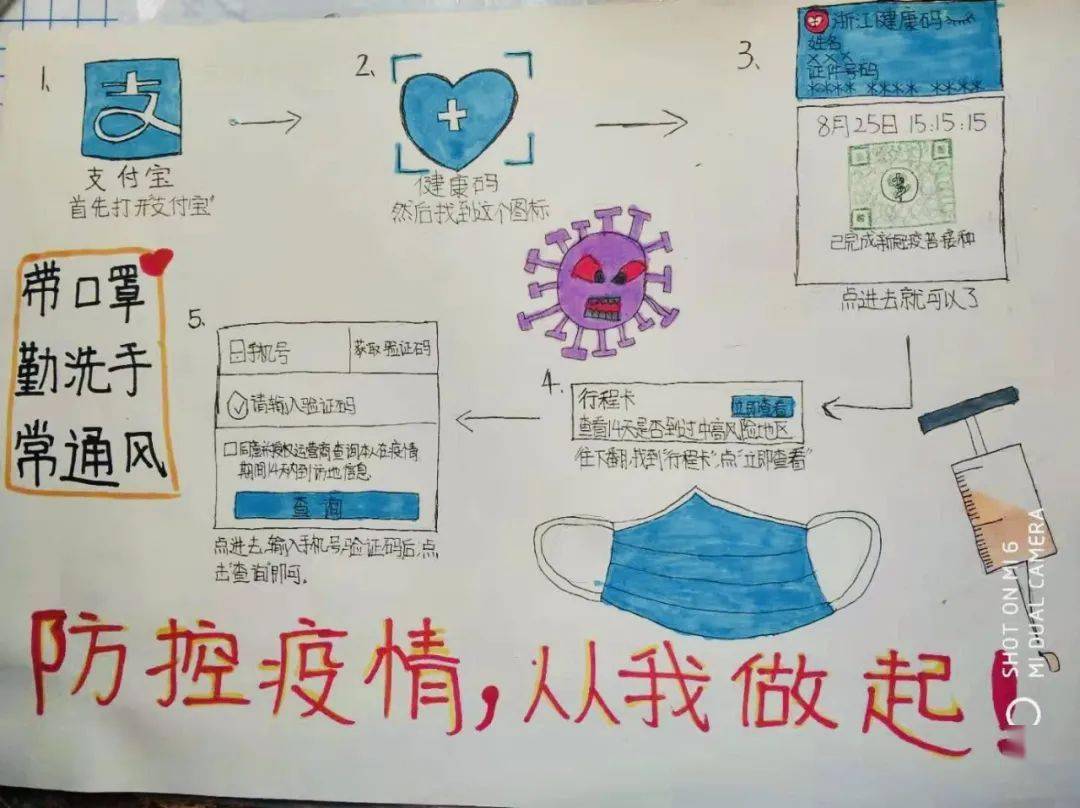 1、
支
支付宝
首先打开"支付宝"
2、
健康码
然后找到这个图标
3、
浙江健康码
姓名
×××
证件号码
**** **** ****
8月25日 15:15:15
已完成新冠疫苗接种
点进去就可以了
4、
行程卡
立即查看
查看14天是否到过中高风险地区
往下翻,找到"行程卡",点"立即查看"
5、
手机号
获取验证码
请输入验证码
同意并授权运营商查询本人在疫情
期间14天内到访地信息
查询
点进去,输入手机号,验证码后,点
击"查询"即可。
带口罩
勤洗手
常通风
防控疫情,从我做起!
SHOT ON MI 6
MI DUAL CAMERA